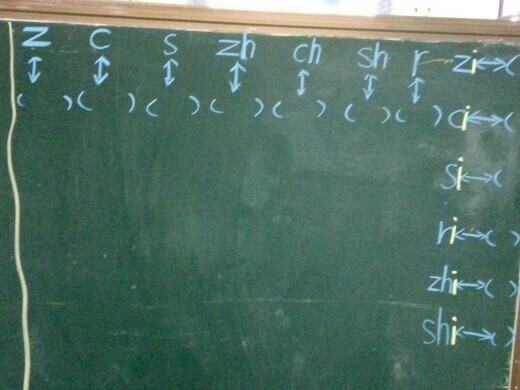 z c s zh ch sh r
↕ ↕ ↕ ↕ ↕ ↕ ↕
( ) ( ) ( ) ( ) ( ) ( ) ( )
zi↔(
ci↔(
si↔(
ri↔( )
zhi↔( )
shi↔( )